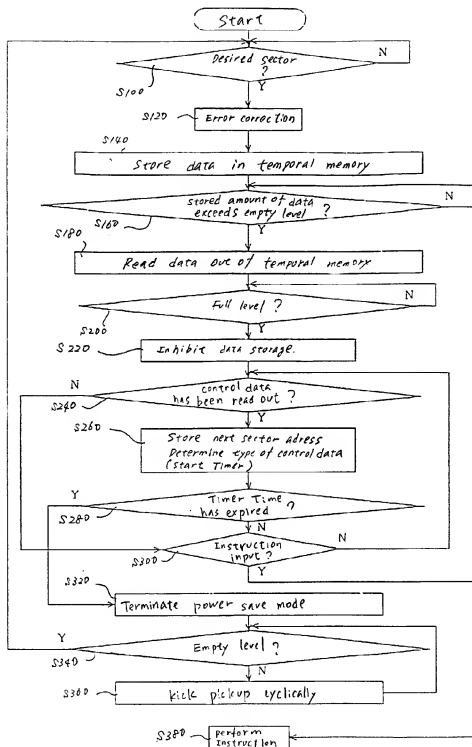 Start
Desired sector
?
N
S100
Y
S120
Error correction
S140
Store data in temporal memory
Stored amount of data
exceeds empty level ?
N
S160
Y
S180
Read data out of temporal memory
Full level ?
N
S200
Y
S220
Inhibit data storage.
N
control data
has been read out ?
S240
Y
S260
Store next sector adress
Determine type of control data
(Start Timer)
Y
Timer Time
has expired ?
S280
N
Instruction
input ?
N
S300
Y
S320
Terminate power save mode
Y
Empty level ?
S340
N
S360
kick pickup cyclically
S380
Perform
Instruction